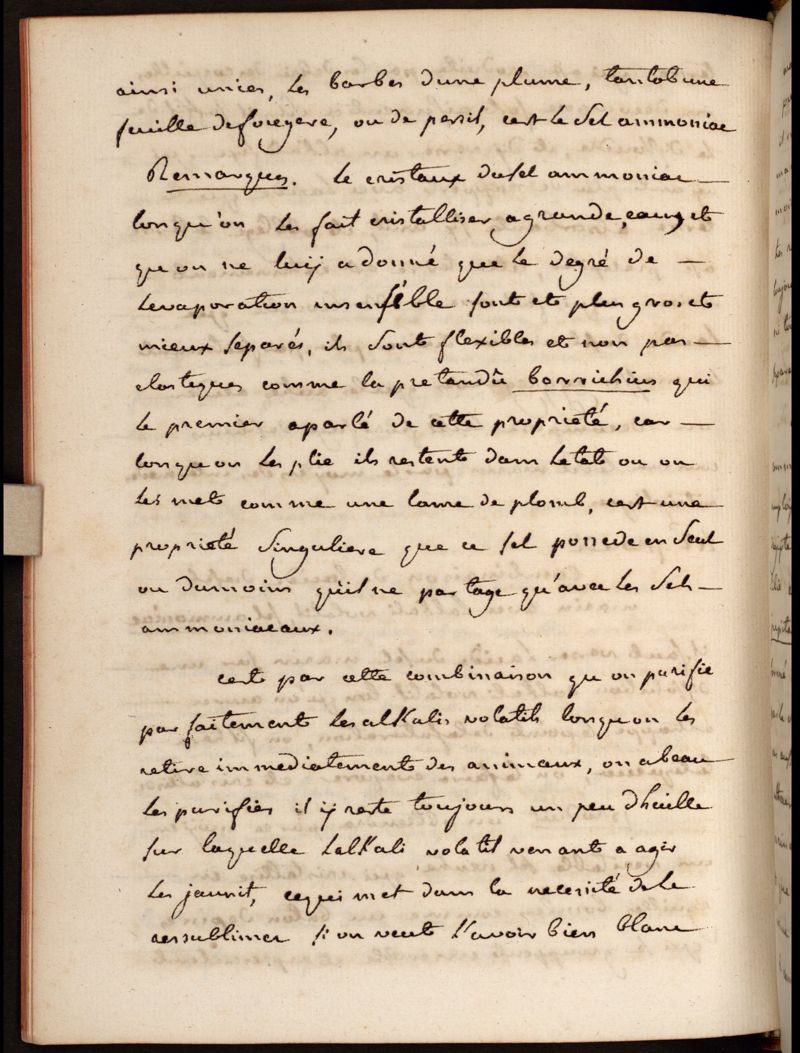 ainsi unies, les barbes dune plume, tantot une
feuille defougere, ou de persil, cest le Sel ammoniac
Remarques. le cristaux dusel ammoniac —
lorsqu'on les fait cristalliser agrande eau, et
qu on ne luy a donné que le degré de —
levaporation insensible sont et plus gros et
mieux separés, ils sont flexibles et non pas —
elastiques comme la pretendû borrichius qui
le premier aparlé de cette proprieté, car —
lorsqu on les plie ils restent dans letat ou on
les met comme une lame de plomb, cest une
proprieté Singuliere que ce sel possede en Seul
ou dumoins quil ne partage qu'avec les Sels —
ammoniacaux.
cest par cette combinaison qu on purifie
parfaitement les alKalis volatils lorsqu on les
retire immediatement des animaux, on abeau
les purifies il y reste toujours un peu dhuille
sur laquelle lalKali volatil venant a agir
les jaunit, cequi met dans la necesité de le
ressublimer si on veut l'avoir bien blanc